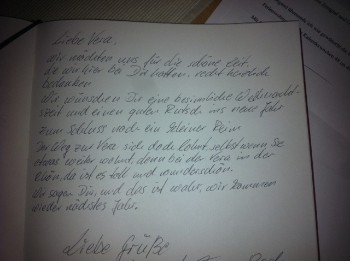 Liebe Vera,
wir möchten uns für die schöne Zeit,
die wir hier bei Dir hatten, recht herzlich
bedanken
Wir wünschen Dir eine besinnliche Weihnacht-
szeit und einen guten Rutsch ins neue Jahr
Zum Schluss noch ein kleiner Reim
Der Weg zur Vera sich doch lohnt, selbst wenn sie
etwas weiter wohnt, denn bei der Vera in der
Rhön, da ist es toll und wunderschön.
Wir sagen Dir, und das ist wahr, wir kommen
wieder nächstes Jahr.
Liebe Grüße